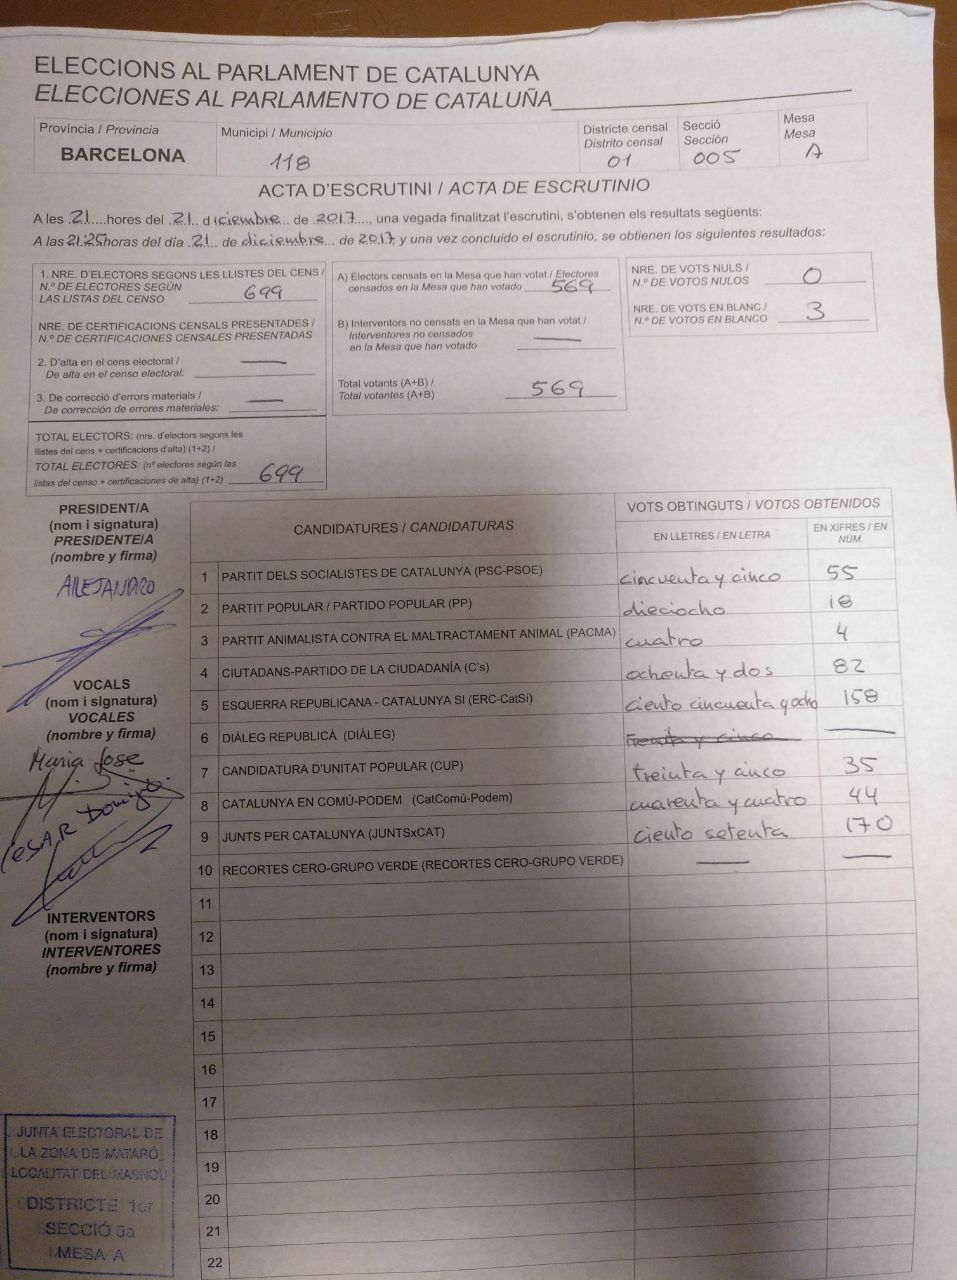 ELECCIONS AL PARLAMENT DE CATALUNYA
ELECCIONES AL PARLAMENTO DE CATALUÑA
Província / Provincia
BARCELONA
Municipi / Municipio
118
Districte censal
Distrito censal
01
Secció
Sección
005
Mesa
Mesa
A
ACTA D'ESCRUTINI / ACTA DE ESCRUTINIO
A les 21 hores del 21 diciembre de 2017, una vegada finalitzat l'escrutini, s'obtenen els resultats següents:
A las 21:25 horas del día 21 de diciembre de 2017 y una vez concluido el escrutinio, se obtienen los siguientes resultados:
1. NRE. D'ELECTORS SEGONS LES LLISTES DEL CENS /
N.º DE ELECTORES SEGÚN
LAS LISTAS DEL CENSO 699
NRE. DE CERTIFICACIONS CENSALS PRESENTADES /
N.º DE CERTIFICACIONES CENSALES PRESENTADAS
2. D'alta en el cens electoral / —
De alta en el censo electoral:
3. De correcció d'errors materials / —
De corrección de errores materiales:
TOTAL ELECTORS: (nre. d'electors segons les
llistes del cens + certificacions d'alta) (1+2) /
TOTAL ELECTORES: (nº electores según las
listas del censo + certificaciones de alta) (1+2) 699
A) Electors censats en la Mesa que han votat / Electores
censados en la Mesa que han votado 569
B) Interventors no censats en la Mesa que han votat /
Interventores no censados —
en la Mesa que han votado
Total votants (A+B) /
Total votantes (A+B) 569
NRE. DE VOTS NULS /
N.º DE VOTOS NULOS 0
NRE. DE VOTS EN BLANC /
N.º DE VOTOS EN BLANCO 3
PRESIDENT/A
(nom i signatura)
PRESIDENTE/A
(nombre y firma)
ALEJANDRO
VOCALS
(nom i signatura)
VOCALES
(nombre y firma)
Maria Jose
CESAR
INTERVENTORS
(nom i signatura)
INTERVENTORES
(nombre y firma)
CANDIDATURES / CANDIDATURAS
VOTS OBTINGUTS / VOTOS OBTENIDOS
EN LLETRES / EN LETRA
EN XIFRES / EN
NÚM.
1 PARTIT DELS SOCIALISTES DE CATALUNYA (PSC-PSOE) cincuenta y cinco 55
2 PARTIT POPULAR / PARTIDO POPULAR (PP) dieciocho 18
3 PARTIT ANIMALISTA CONTRA EL MALTRACTAMENT ANIMAL (PACMA) cuatro 4
4 CIUTADANS-PARTIDO DE LA CIUDADANÍA (C's) ochenta y dos 82
5 ESQUERRA REPUBLICANA - CATALUNYA SÍ (ERC-CatSí) ciento cincuenta y ocho 158
6 DIÀLEG REPUBLICÀ (DIÀLEG) treinta y cinco —
7 CANDIDATURA D'UNITAT POPULAR (CUP) treinta y cinco 35
8 CATALUNYA EN COMÚ-PODEM (CatComú-Podem) cuarenta y cuatro 44
9 JUNTS PER CATALUNYA (JUNTSxCAT) ciento setenta 170
10 RECORTES CERO-GRUPO VERDE (RECORTES CERO-GRUPO VERDE) — —
11
12
13
14
15
16
17
18
19
20
21
22
JUNTA ELECTORAL DE
LA ZONA DE MATARÓ
LOCALITAT DEL MASNOU
DISTRICTE 1er
SECCIÓ 5a
MESA A